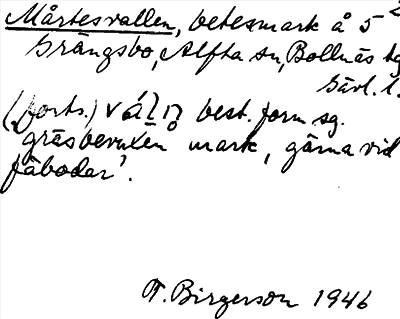 Mårtesvallen, betesmark å 5²
Grängsbo, Alfta sn, Bollnäs tg
Gävl. l.
(forts.) best. form sg.
'gräsbevuxen mark, gärna vid
fäbodar'.
T. Birgerson 1946